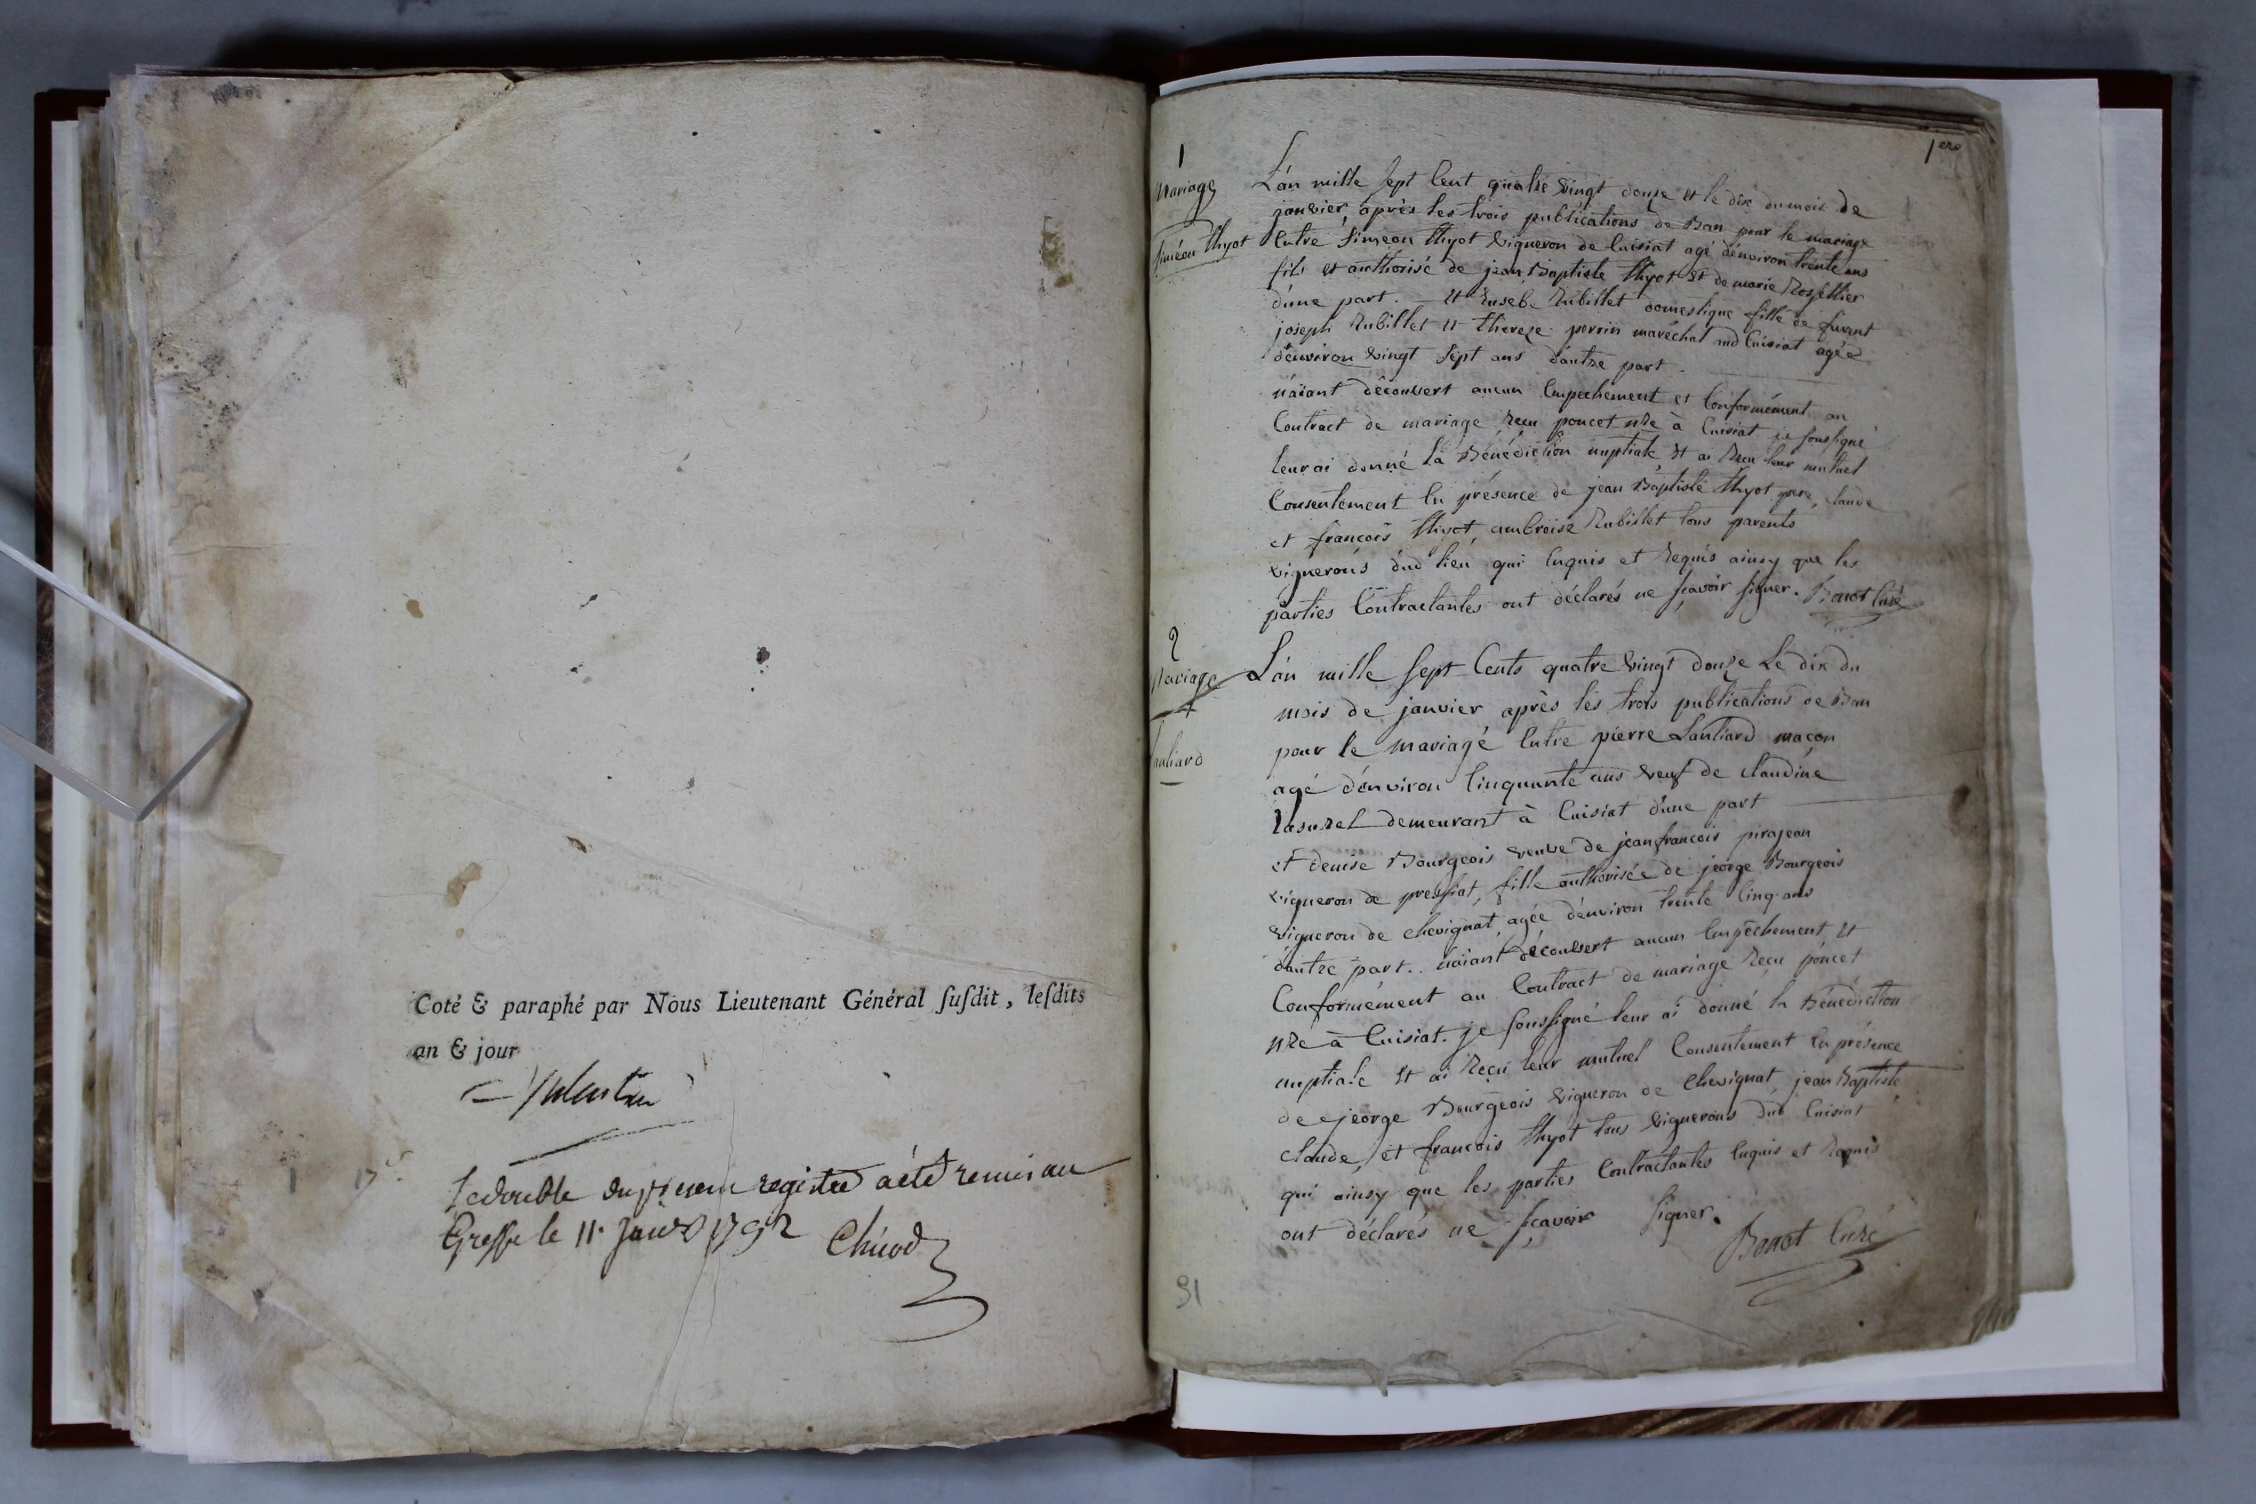 Coté & paraphé par Nous Lieutenant Général ſuſdit, leſdits
an & jour
Le double du présent registre a été remis au
Greffe le 11 janv 1792
1ere
1
Mariage
Siméon thyot
L'an mille sept Cent quatre vingt douze et le dix du mois de
janvier, après les trois publications de Ban pour le mariage
Entre Siméon thyot vigneron de Cuisiat agé d'environ trente ans
fils et authorisé de jean Baptiste thyot et de marie
d'une part. et Eusebe Rubillet domestique fille de
joseph Rubillet et therese perrin maréchal aud Cuisiat agée
d'environ vingt sept ans d'autre part.
n'aiant découvert aucun Empechement et Conformément au
Contract de mariage reçu poncet nre à Cuisiat je soussigné
leur ai donné la Bénédiction nuptiale, et ai Reçu leur mutuel
Consentement En présence de jean Baptiste thyot pere, claude
et françois thyot, ambroise Rubillet tous parents
vignerons dud lieu qui Enquis et Requis ainsy que les
parties Contractantes ont déclarés ne sçavoir signer. Bonot Curé
2
Mariage
L'an mille sept Cents quatre vingt douze Le dix du
mois de janvier après les trois publications de Ban
pour le mariage Entre pierre Lanliard maçon
agé d'environ Cinquante ans veuf de claudine
demeurant à Cuisiat d'une part
et denise Bourgeois veuve de jean françois pirajean
vigneron de pressiat, fille authorisée de jeorge Bourgeois
vigneron de chevignat, agée d'environ trente Cinq ans
d'autre part.. n'aiant découvert aucun Empêchement, et
Conformément au Contract de mariage Reçu poncet
nre à Cuisiat. je soussigné leur ai donné la Bénédiction
nuptiale et ai Reçu leur mutuel Consentement En présence
de jeorge Bourgeois vigneron de Chevignat, jean Baptiste
claude, et françois thyot tous vignerons dud Cuisiat
qui ainsy que les parties Contractantes Enquis et Requis
ont déclarés ne sçavoir signer.
Bonot Curé
91